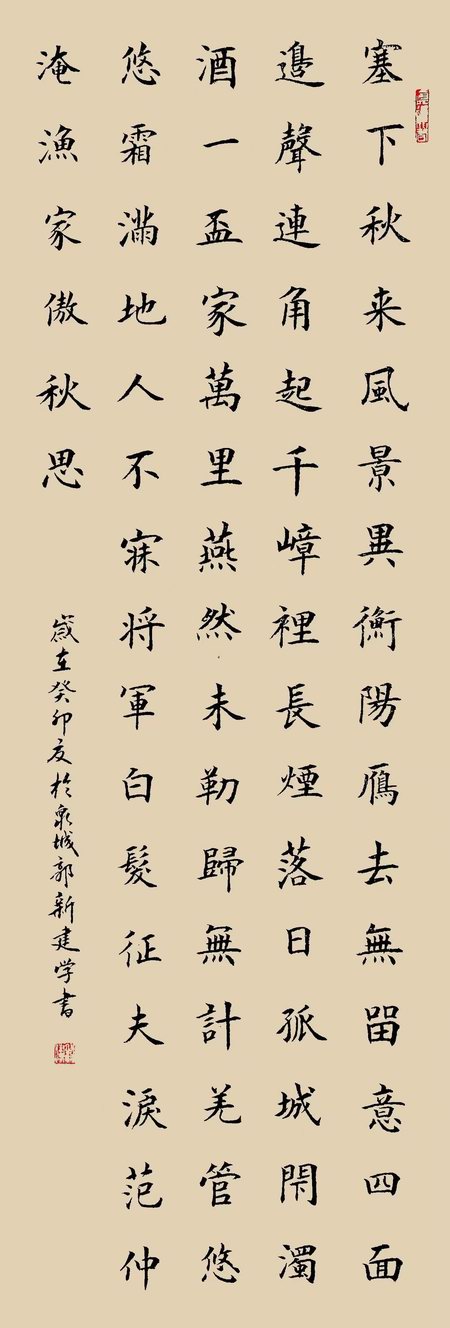 塞下秋来風景異衡陽鴈去無留意四面
邉聲連角起千嶂裡長煙落日孤城閇濁
酒一盃家萬里燕然未勒歸無計羌管悠
悠霜滿地人不寐将軍白髮征夫淚范仲
淹漁家傲秋思
歲在癸卯夏於泉城郭新建学書